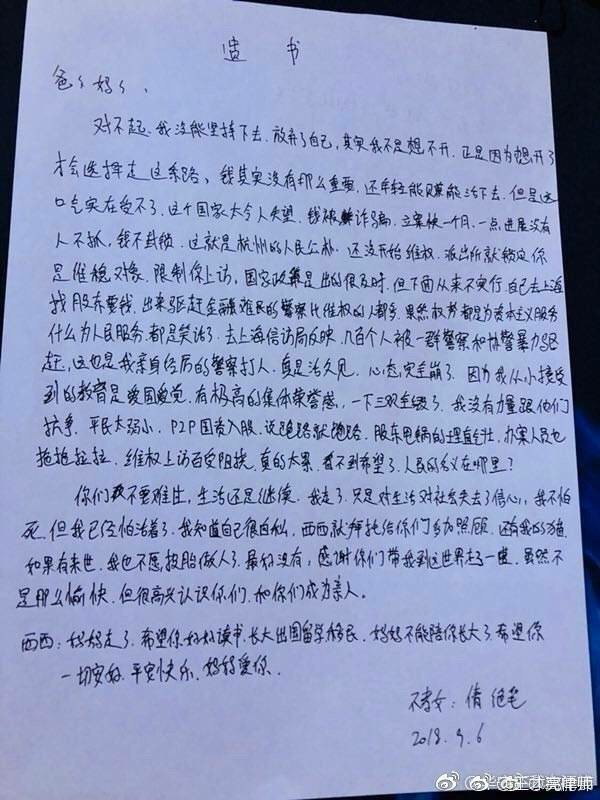 遗书
爸爸妈妈、
对不起、我没能坚持下去、放弃了自己，其实我不是想不开、正是因为想开了
才会选择走这条路、钱其实没有那么重要、还年轻能赚能活下去、但是这
口气实在受不了、这个国家太令人失望、钱被诈骗、立案快一个月、一点进展没有
人不抓、钱不封锁、这就是杭州的人民公仆、还没开始维权、派出所就锁定你
是维稳对象、限制你上访、国家政策是出的很及时、但下面从来不实行、自己去上海
找股东要钱、出来驱赶金融难民的警察比维权的人都多、果然权势都是为资本主义服务
什么为人民服务、都是笑话了、去上海信访局反映、几百个人被一群警察和协警暴力驱
赶、这也是我亲身经历的警察打人、真是活久见、心态完全崩了、因为我从小接受
到的教育是爱国爱党、有极高的集体荣誉感、一下三观全毁了、我没有力量跟他们
抗争、平民太弱小、P2P国资入股、说跑路就跑路、股东甩锅的理直气壮、办案人员也
拖拖拉拉、维权上访百受阻挠、真的太累、看不到希望了、人民的名义在哪里？
你们不要难过、生活还是继续、我走了、只是对生活对社会失去了信心、我不怕
死、但我已经怕活着了、我知道自己很自私、西西就拜托给你们多加照顾、还有我的猫
如果有来世、我也不愿投胎做人了、最好没有、感谢你们带我到这世界走了一遭、虽然不
是那么愉快、但很高兴认识你们、和你们成为亲人。
西西：妈妈走了、希望你好好读书、长大出国留学移民、妈妈不能陪你长大了、希望你
一切安好、平安快乐、妈妈爱你、
不孝女：倩 绝笔
2018.9.6